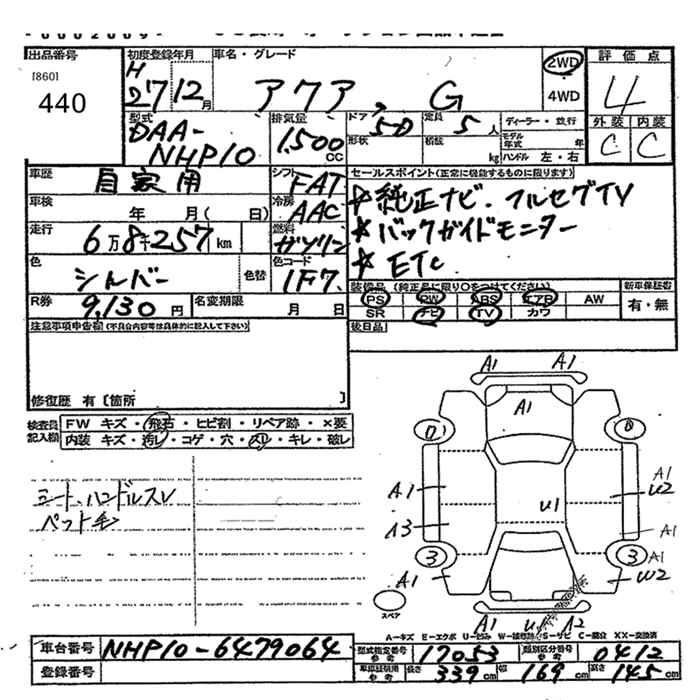 出品番号 初度登録年月 車名・グレード 2WD 評価点
[860] H 4WD
440 27 12月 アクア, G 4
型式 排気量 ドア 5D 定員 5人 ディーラー・並行 外装 内装
DAA- 1,500cc 形状 積載 kg モデル年式 年 C C
NHP10 ハンドル 左・右
車歴 自家用 シフト FAT セールスポイント(正常に機能するものに限ります)
車検 年 月( 日) 冷房 AAC ☆純正ナビ.フルセグTV
走行 6万8千257km 燃料 ガソリン ☆バックガイドモニター
色 シルバー 色替 色コード 1F7. ☆ETC
R券 9,130円 名変期限 月 日 装備品(純正品に限り○をつけてください) 新車保証書
PS PW ABS エアB AW 有・無
SR ナビ TV カワ
注意事項申告欄(不具合内容等は具体的に記入して下さい) 後日品
修復歴 有 [箇所 ]
検査員記入欄 FW キズ・飛石・ヒビ割・リペア跡・×要
内装 キズ・汚レ・コゲ・穴・スレ・キレ・破レ
シート、ハンドルスレ
ペット毛
A1 A1
A1
A1 U1 U2 A1
A3 A1
3 3 A1
A1 W2
スペア
A1 U1 A2
A-キズ E-エクボ U-凹み W-補修跡 S-サビ C-腐食 XX-交換済
車台番号 NHP10-6479064 型式指定番号 参考 17053 類別区分番号 参考 0412
登録番号 車車証引用 参考 長さ 339cm 幅 169cm 高さ 145cm